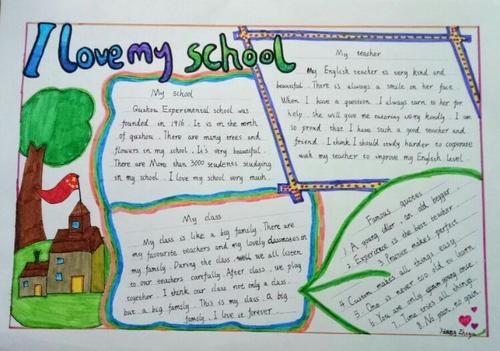 I love my school
My school
Quzhou Experimental school was
founded in 1916. It is on the north
of quzhou. There are many trees and
flowers in my school. It's very beautiful.
There are More than 3000 students studying
in my school. I love my school very much.
My teacher
My English teacher is very kind and
beautiful. There is always a smile on her face.
When I have a question. I always turn to her for
help. she will give me tutoring very kindly. I am
so proud that I have such a good teacher and
friend. I think I should study harder to cooperate
with my teacher to improve my English level.
My class
My class is like a big family. There are
my favourite teachers and my lovely classmates in
my family. During the class, we all listen
to our teachers carefully. After class, we play
together. I think our class not only a class.
but a big family. This is my class. A big
family. I love it forever.
Famous quotes
1. A young idler, an old beggar.
2. Experience is the best teacher
3. Practice makes perfect.
4. Custom makes all things easy.
5. One is never too old to learn
6. You are only young once
7. Time tries all things.
8. No pain, no gain